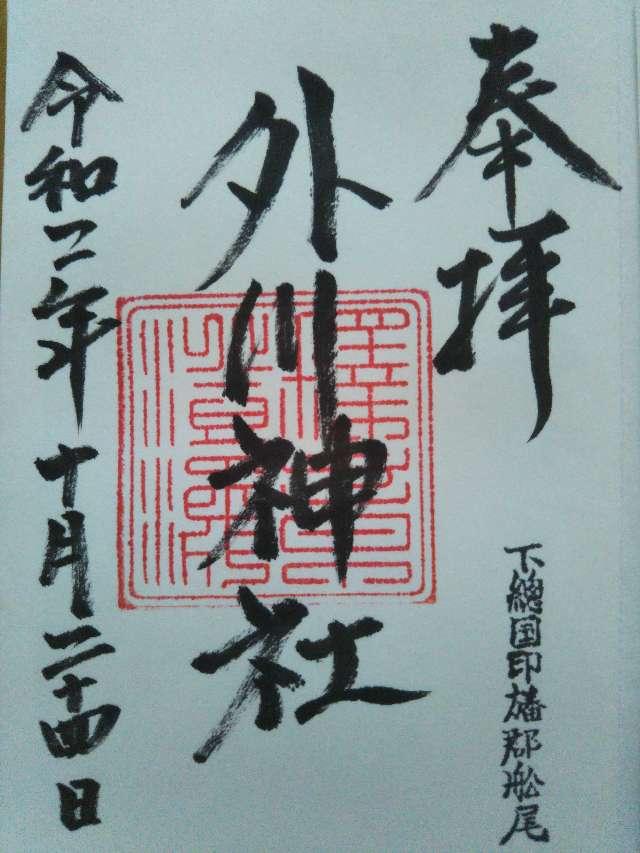 奉拝
下總国印旛郡舩尾
外川神社
令和二年十月二十四日